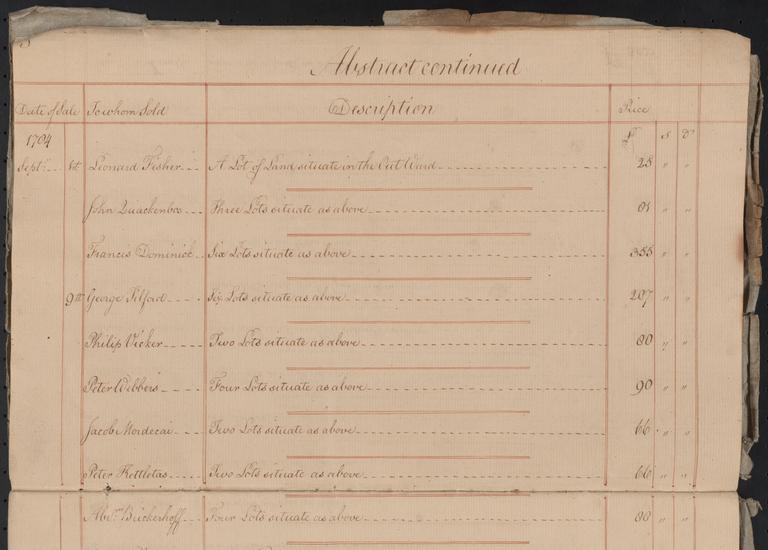 Abstract continued
Date of Sale To whom Sold Description Price
1784 £ S D
Sept.r 8th Leonard Fisher A Lot of Land situate in the Out Ward 25 " "
John Quackenbos Three Lots situate as above " "
Francis Dominick Six Lots situate as above 355 " "
9th George Pilford Six Lots situate as above 207 " "
Philip Vicker Two Lots situate as above 80 " "
Peter Webbers Four Lots situate as above 90 " "
Jacob Mordecai Two Lots situate as above 66 " "
Peter Kettletas Two Lots situate as above 66 " "
Abr.m Brickerhoff Four Lots situate as above 80 " "